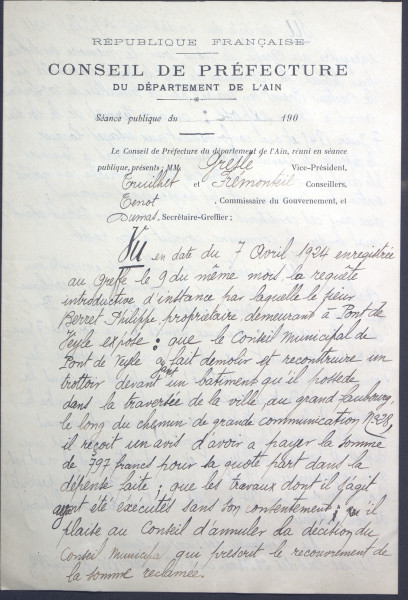 RÉPUBLIQUE FRANÇAISE
CONSEIL DE PRÉFECTURE
DU DÉPARTEMENT DE L'AIN
Séance publique du 190
Le Conseil de Préfecture du département de l'Ain, réuni en séance
publique, présents : MM. Gresle Vice-Président,
Truilhet et Frémonteil Conseillers,
Tenot , Commissaire du Gouvernement, et
Dumas, Secrétaire-Greffier ;
Vu en date du 7 Avril 1924 enregistrée
au Greffe le 9 du même mois, la requête
introductive d'instance par laquelle le sieur
Berret Philippe, propriétaire, demeurant à Pont de
Veyle expose : que le Conseil Municipal de
Pont de Veyle ayant fait démolir et reconstruire un
trottoir devant un bâtiment qu'il possède
dans la traversée de la ville, au grand Faubourg,
le long du chemin de grande communication N° 28,
il reçoit un avis d'avoir à payer la somme
de 797 francs pour sa quote part dans la
dépense faite ; que les travaux dont il s'agit
ayant été exécutés sans son consentement ; il
plaise au Conseil d'annuler la décision du
Conseil Municipal qui prescrit le recouvrement de
la somme réclamée.